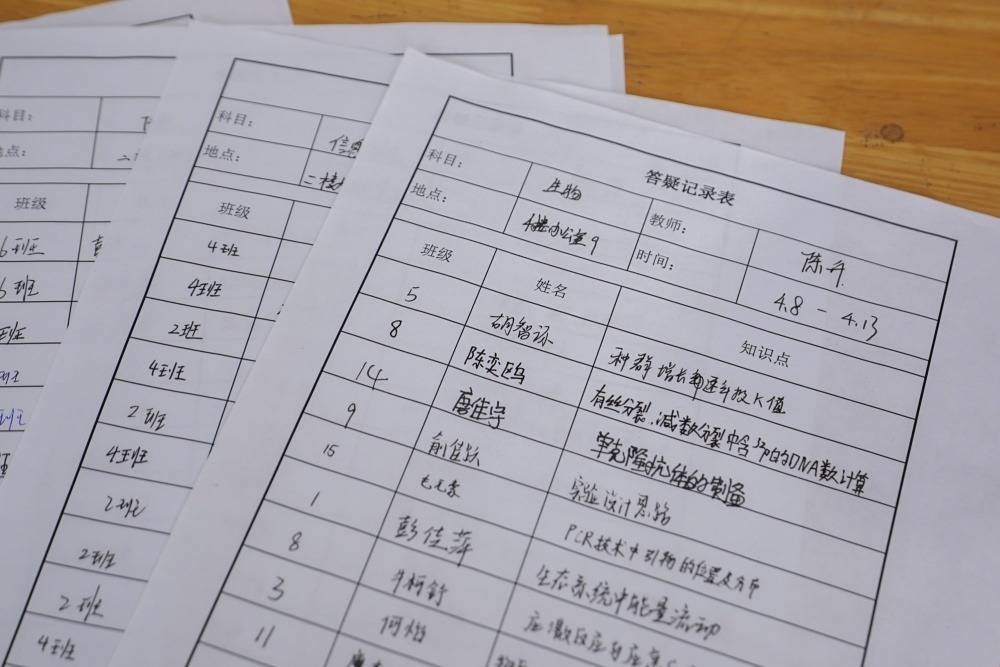 科目:
地点:
班级
6班
6班
班
班
班
科目:
地点:
二楼
班级
4班
4班
2班
4班
2班
4班
2班
2班
2班
4班
答疑记录表
科目: 生物 教师: 陈丹
地点: 4楼办公室9 时间: 4.8 - 4.13
班级 姓名 知识点
5 胡智 种群增长速率及K值
8 陈奕鸥 有丝分裂、减数分裂中含³²P的DNA数计算
14 唐佳宁 单克隆抗体的制备
9 俞佳跃 实验设计思路
15 PCR技术中引物的位置及方向
1 彭佳萍 生态系统中能量流动
8 牛柯舒
3 何
11